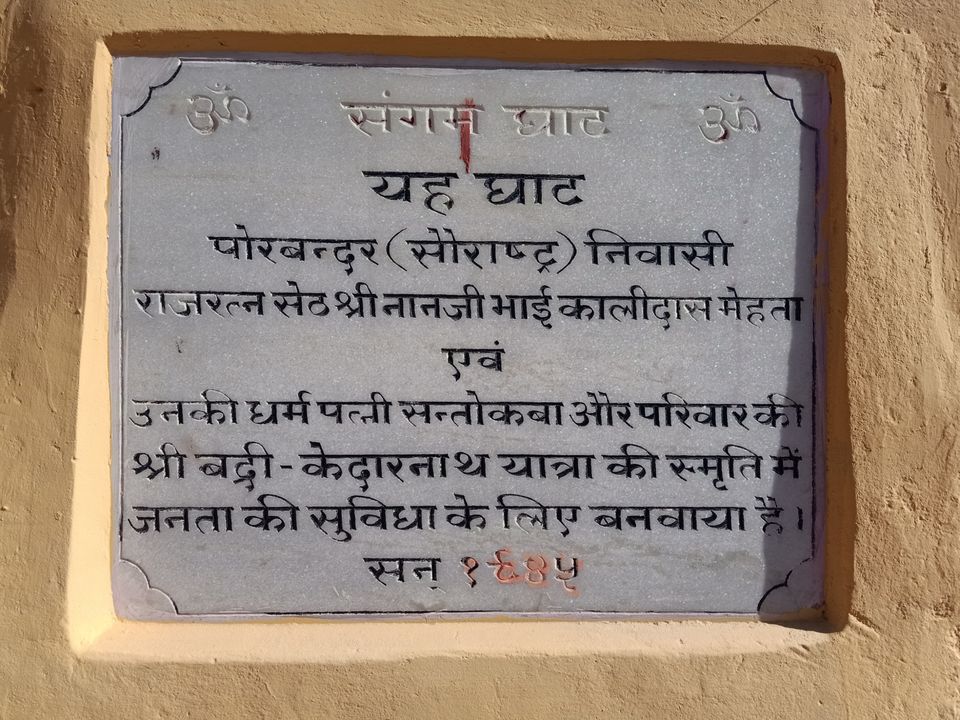 ॐ संगम घाट ॐ
यह घाट
पोरबन्दर (सौराष्ट्र) निवासी
राजरत्न सेठ श्री नानजी भाई कालीदास मेहता
एवं
उनकी धर्म पत्नी सन्तोकबा और परिवार की
श्री बद्री - केदारनाथ यात्रा की स्मृति में
जनता की सुविधा के लिए बनवाया है।
सन्